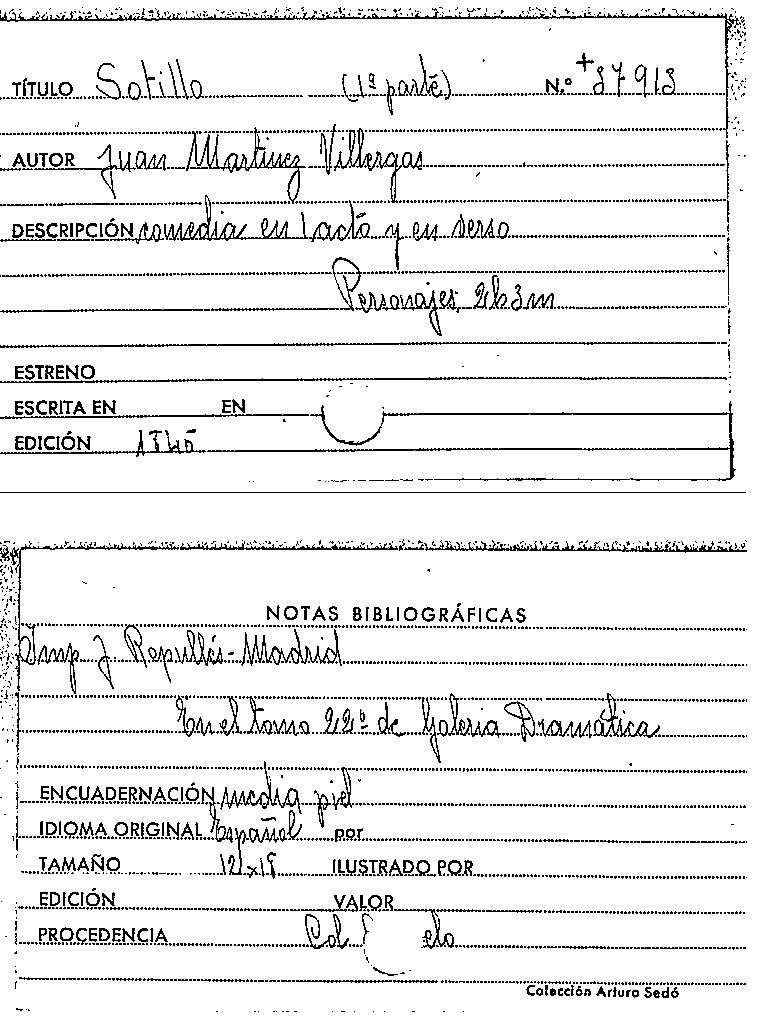 TÍTULO Sotillo (1ª parte) N.º +37913
AUTOR Juan Martinez Villergas
DESCRIPCIÓN comedia en 1 acto y en verso
Personajes, 2h 3m
ESTRENO
ESCRITA EN EN
EDICIÓN
NOTAS BIBLIOGRÁFICAS
Imp J Repullés - Madrid
En el tomo 22º de Galeria Dramática
ENCUADERNACIÓN media piel
IDIOMA ORIGINAL Español por
TAMAÑO 12x19 ILUSTRADO POR
EDICIÓN VALOR
PROCEDENCIA Col
Colección Arturo Sedó